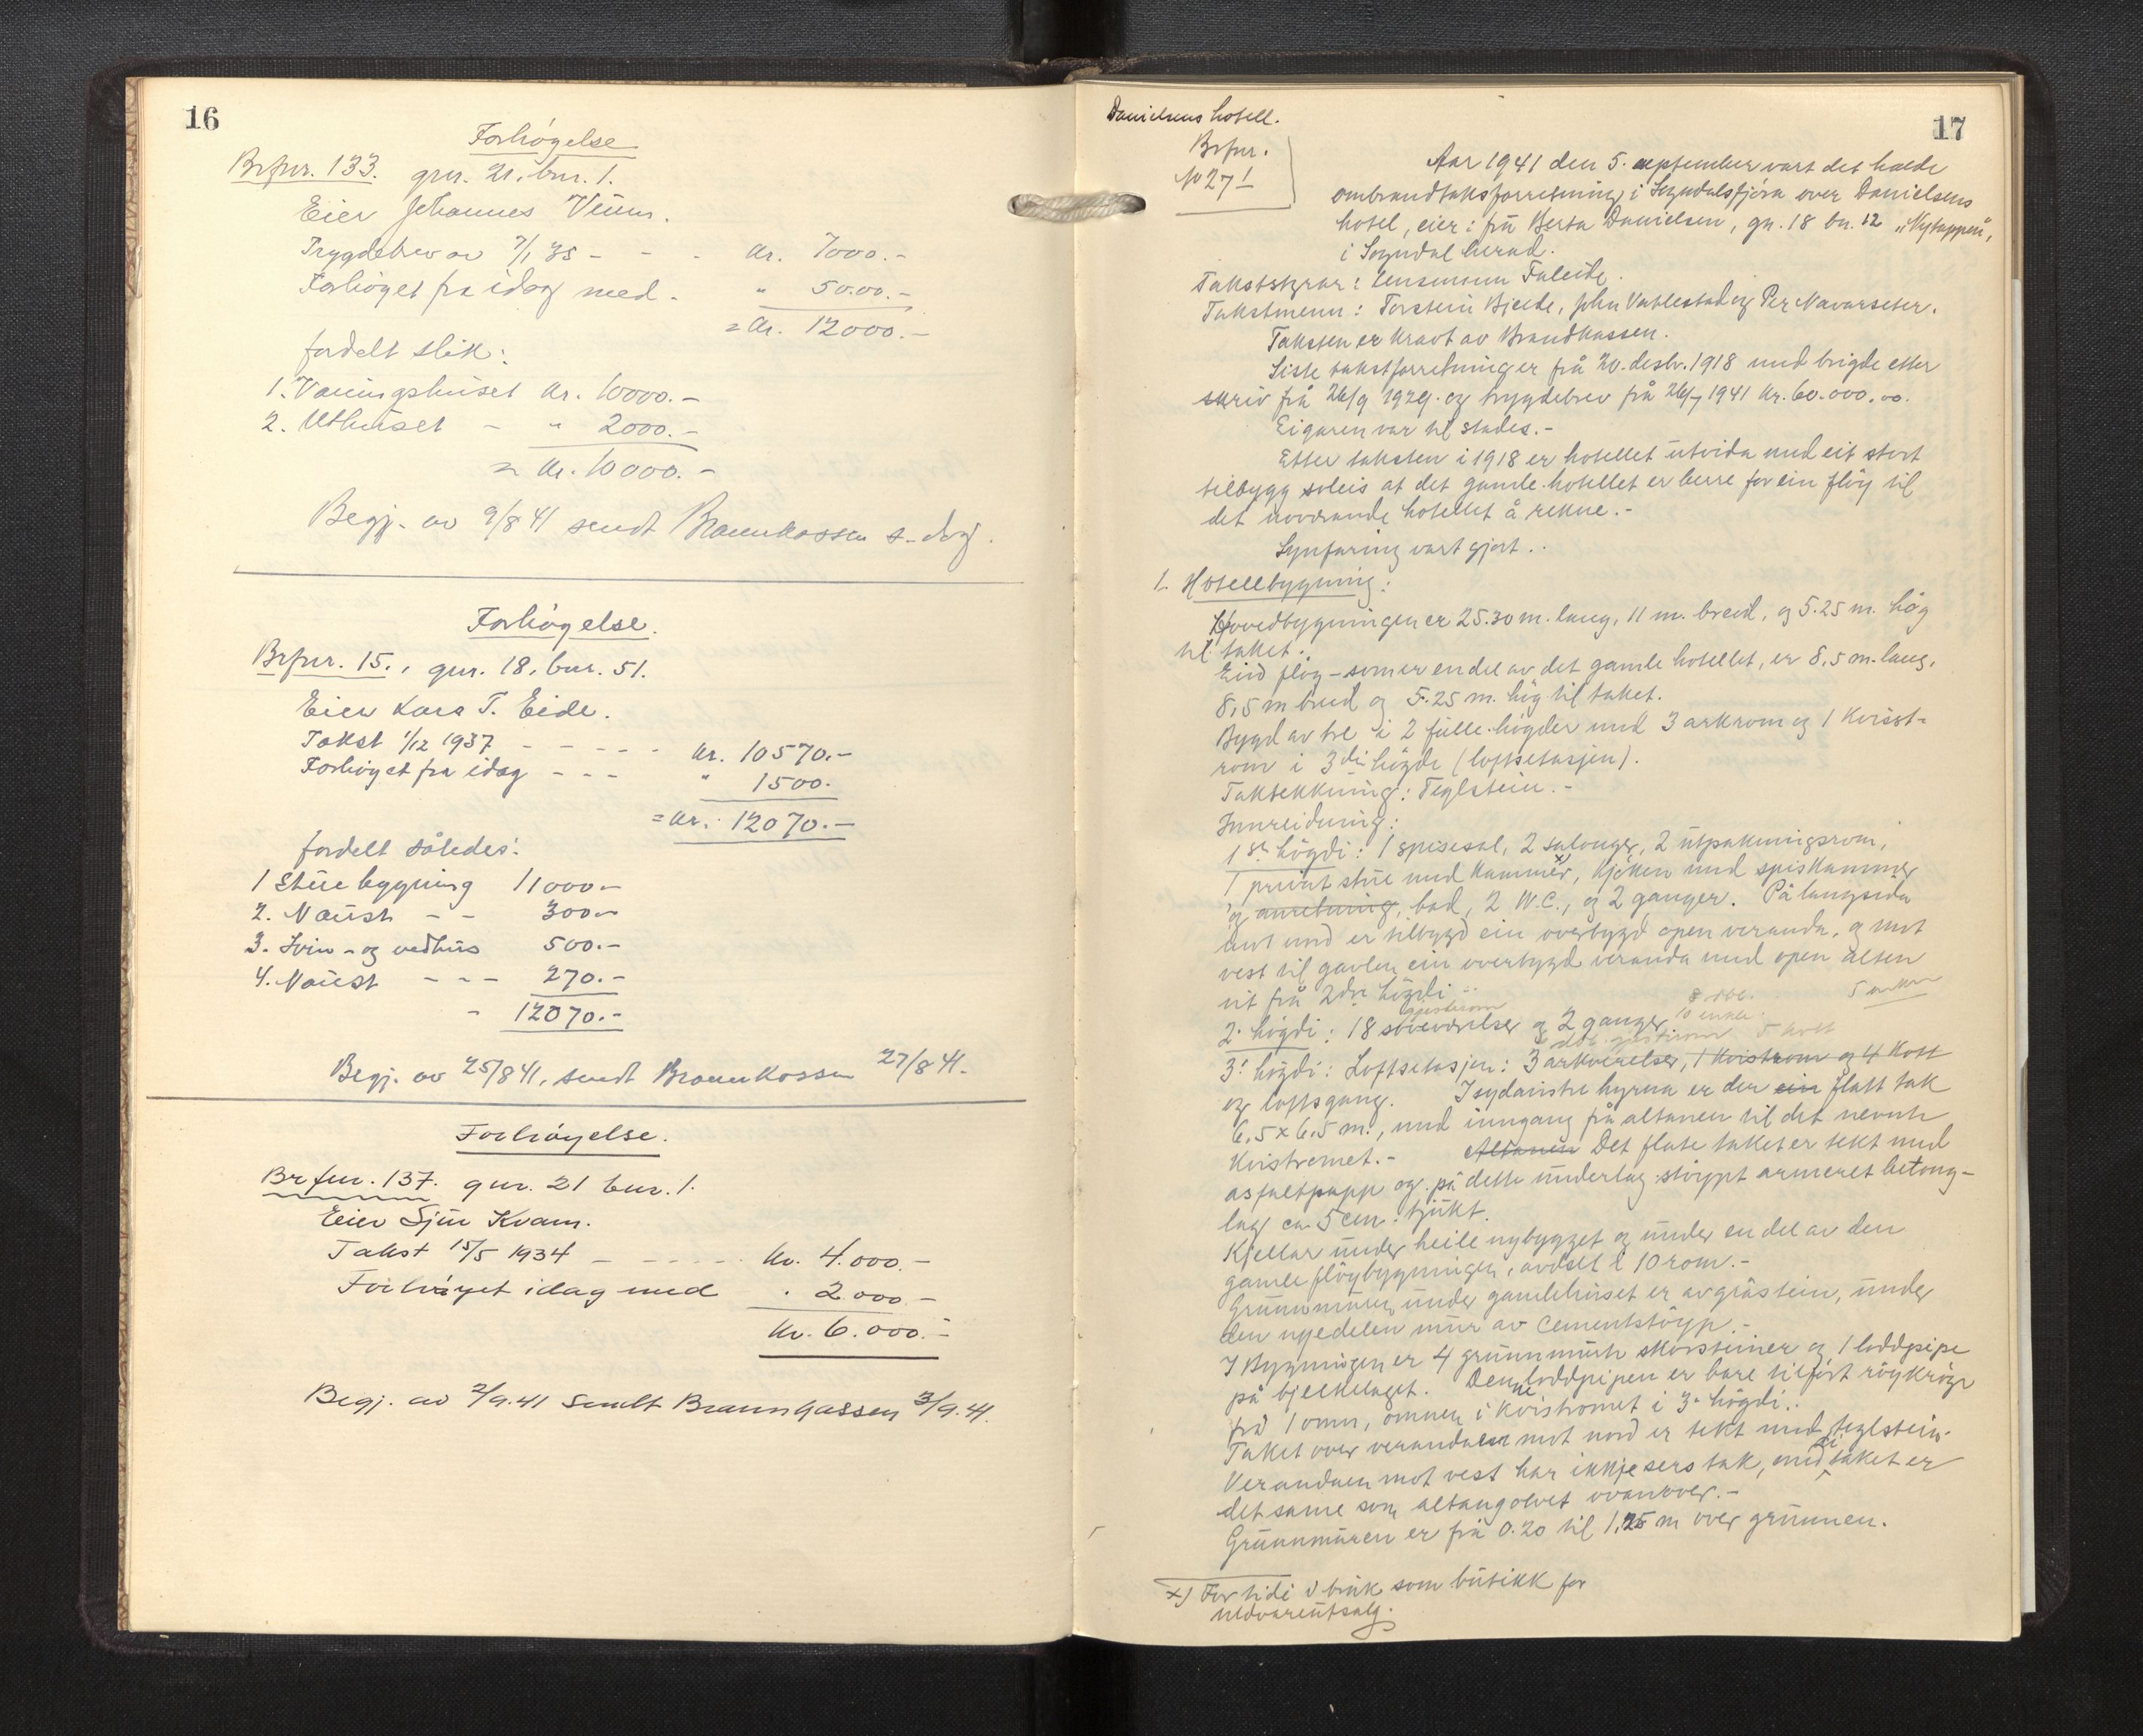 16
Forhøgelse
Brfnr. 133. gnr. 21, bnr. 1.
Eier Johannes Venm.
Trygdebrev av 7/1 35 - - - kr. 7000.-
Forhöget fra idag med - " 5000.-
= kr. 12000.-
fordelt slik:
1. Vaaningshuset kr. 10000.-
2. Uthuset - " 2000.-
= kr. 10000.-
Begj. av 9/8 41 sendt Brannkassen s. dag.
Forhøgelse.
Brfnr. 15., gnr. 18, bnr. 51.
Eier Kara T. Eide.
Takst 1/12 1937 - - - - - kr. 10570.-
Forhöyet fra idag - - - " 1500.
= kr. 12070.-
fordelt således:
1 Stuebygning 11000.-
2. Naust - - 300.-
3. Svin- og vedhus 500.-
4. Naust - - - 270.-
- 12070.-
Begj. av 25/8 41, sendt Brannkassen 27/8 41.
Forhøyelse.
Brfnr. 137. gnr. 21 bnr. 1.
Eier Sjur Kvam.
Takst 15/5 1934 - - - - - kr. 4.000.-
Forhöyet idag med . 2.000.-
Kr. 6.000.-
Begj. av 2/9.41 Sendt Brannkassen 3/9.41.
17
Danielsens hotell.
Brfnr.
No 271
Aar 1941 den 5. september vart det halde
ombrandtakstforretning i Sogndalsfjøra over Danielsens
hotel, eier: frü Berta Danielsen, gn. 18 bn. 12 "Nytappen",
i Sogndal herad.
Takststyrar: lensmann Faleide.
Takstmenn: Torstein Bjelde, John Vatlestad og Per Navarseter.
Taksten er kravt av Brandkassen.
Siste takstforretning er frå 20. desbr. 1918 med brigde etter
skriv frå 26/9 1929. og trygdebrev frå 26/7 1941 kr. 60.000.00.
Eigaren var til stades.-
Etter taksten i 1918 er hotellet utvida med eit stort
tilbygg soleis at det gamle hotellet er berre for ein flöy til
det noverande hotellet å rekne.-
Synfaring vart gjort..
1. Hotellbygning:
Hovedbygningen er 25.30 m. lang, 11 m. breid, og 5.25 m. hög
til taket.
Eind flöy - som er en del av det gamle hotellet, er 8,5 m. lang,
8,5 m breid og 5.25 m. hög til taket.
Bygd av tre i 2 fulle högder med 3 arkrom og 1 kvist-
rom i 3die högde (loftsetasjen).
Taktekkning: Teglstein.-
Innreidning:
1ste högdi: 1 spisesal, 2 salonger, 2 utpakningsrom,
1 privat stue med kammerx, kjöken med spiskammer
og anretning, bad, 2 W.C., og 2 ganger. På langsida
mot nord er tilbygd ein overbygd open veranda, og mot
vest til gavlen ein overbygd veranda med open altan
ut frå 2dre högdi..
2. högdi: 18 soveværelser og 2 ganger
gjesterom 8 dbl. 10 enkle. 5 enkle
3. högdi: Loftsetasjen: 3 arkværelser, 1 kvistrom og 4 kott
dbl. gjesterom 5 kott
og loftsgang. I sydaustre hyrna er der ein flatt tak
6,5 x 6,5 m., med inngang frå altanen til det nevnte
kvistromet.- Altanen Det flate taket er tekt med
asfaltpapp og på dette underlag stöypt armeret betong-
lag ca. 5 cm. tjukt.
Kjellar under heile nybygget og under en del av den
gamle flöybygningen, avdelt i 10 rom.-
Grunnmuren under gamlehuset er av gråstein, under
den nyedelen mur av cementstöyp.-
I Bygningen er 4 grunnmurte skorsteiner og 1 loddpipe
på bjelkelaget. Denne loddpipen er bare tilfört röykrör
frå 1 omn, omnen i kvistromet i 3. högdi..
Taket over verandaen mot nord er tekt med teglstein.
Verandaen mot vest har ikkje sers tak, med di taket er
det same som altangolvet ovanover.-
Grunnmuren er frå 0.20 til 1,25 m over grunnen.
x) For tidi i bruk som butikk for
uldvareutsalg.